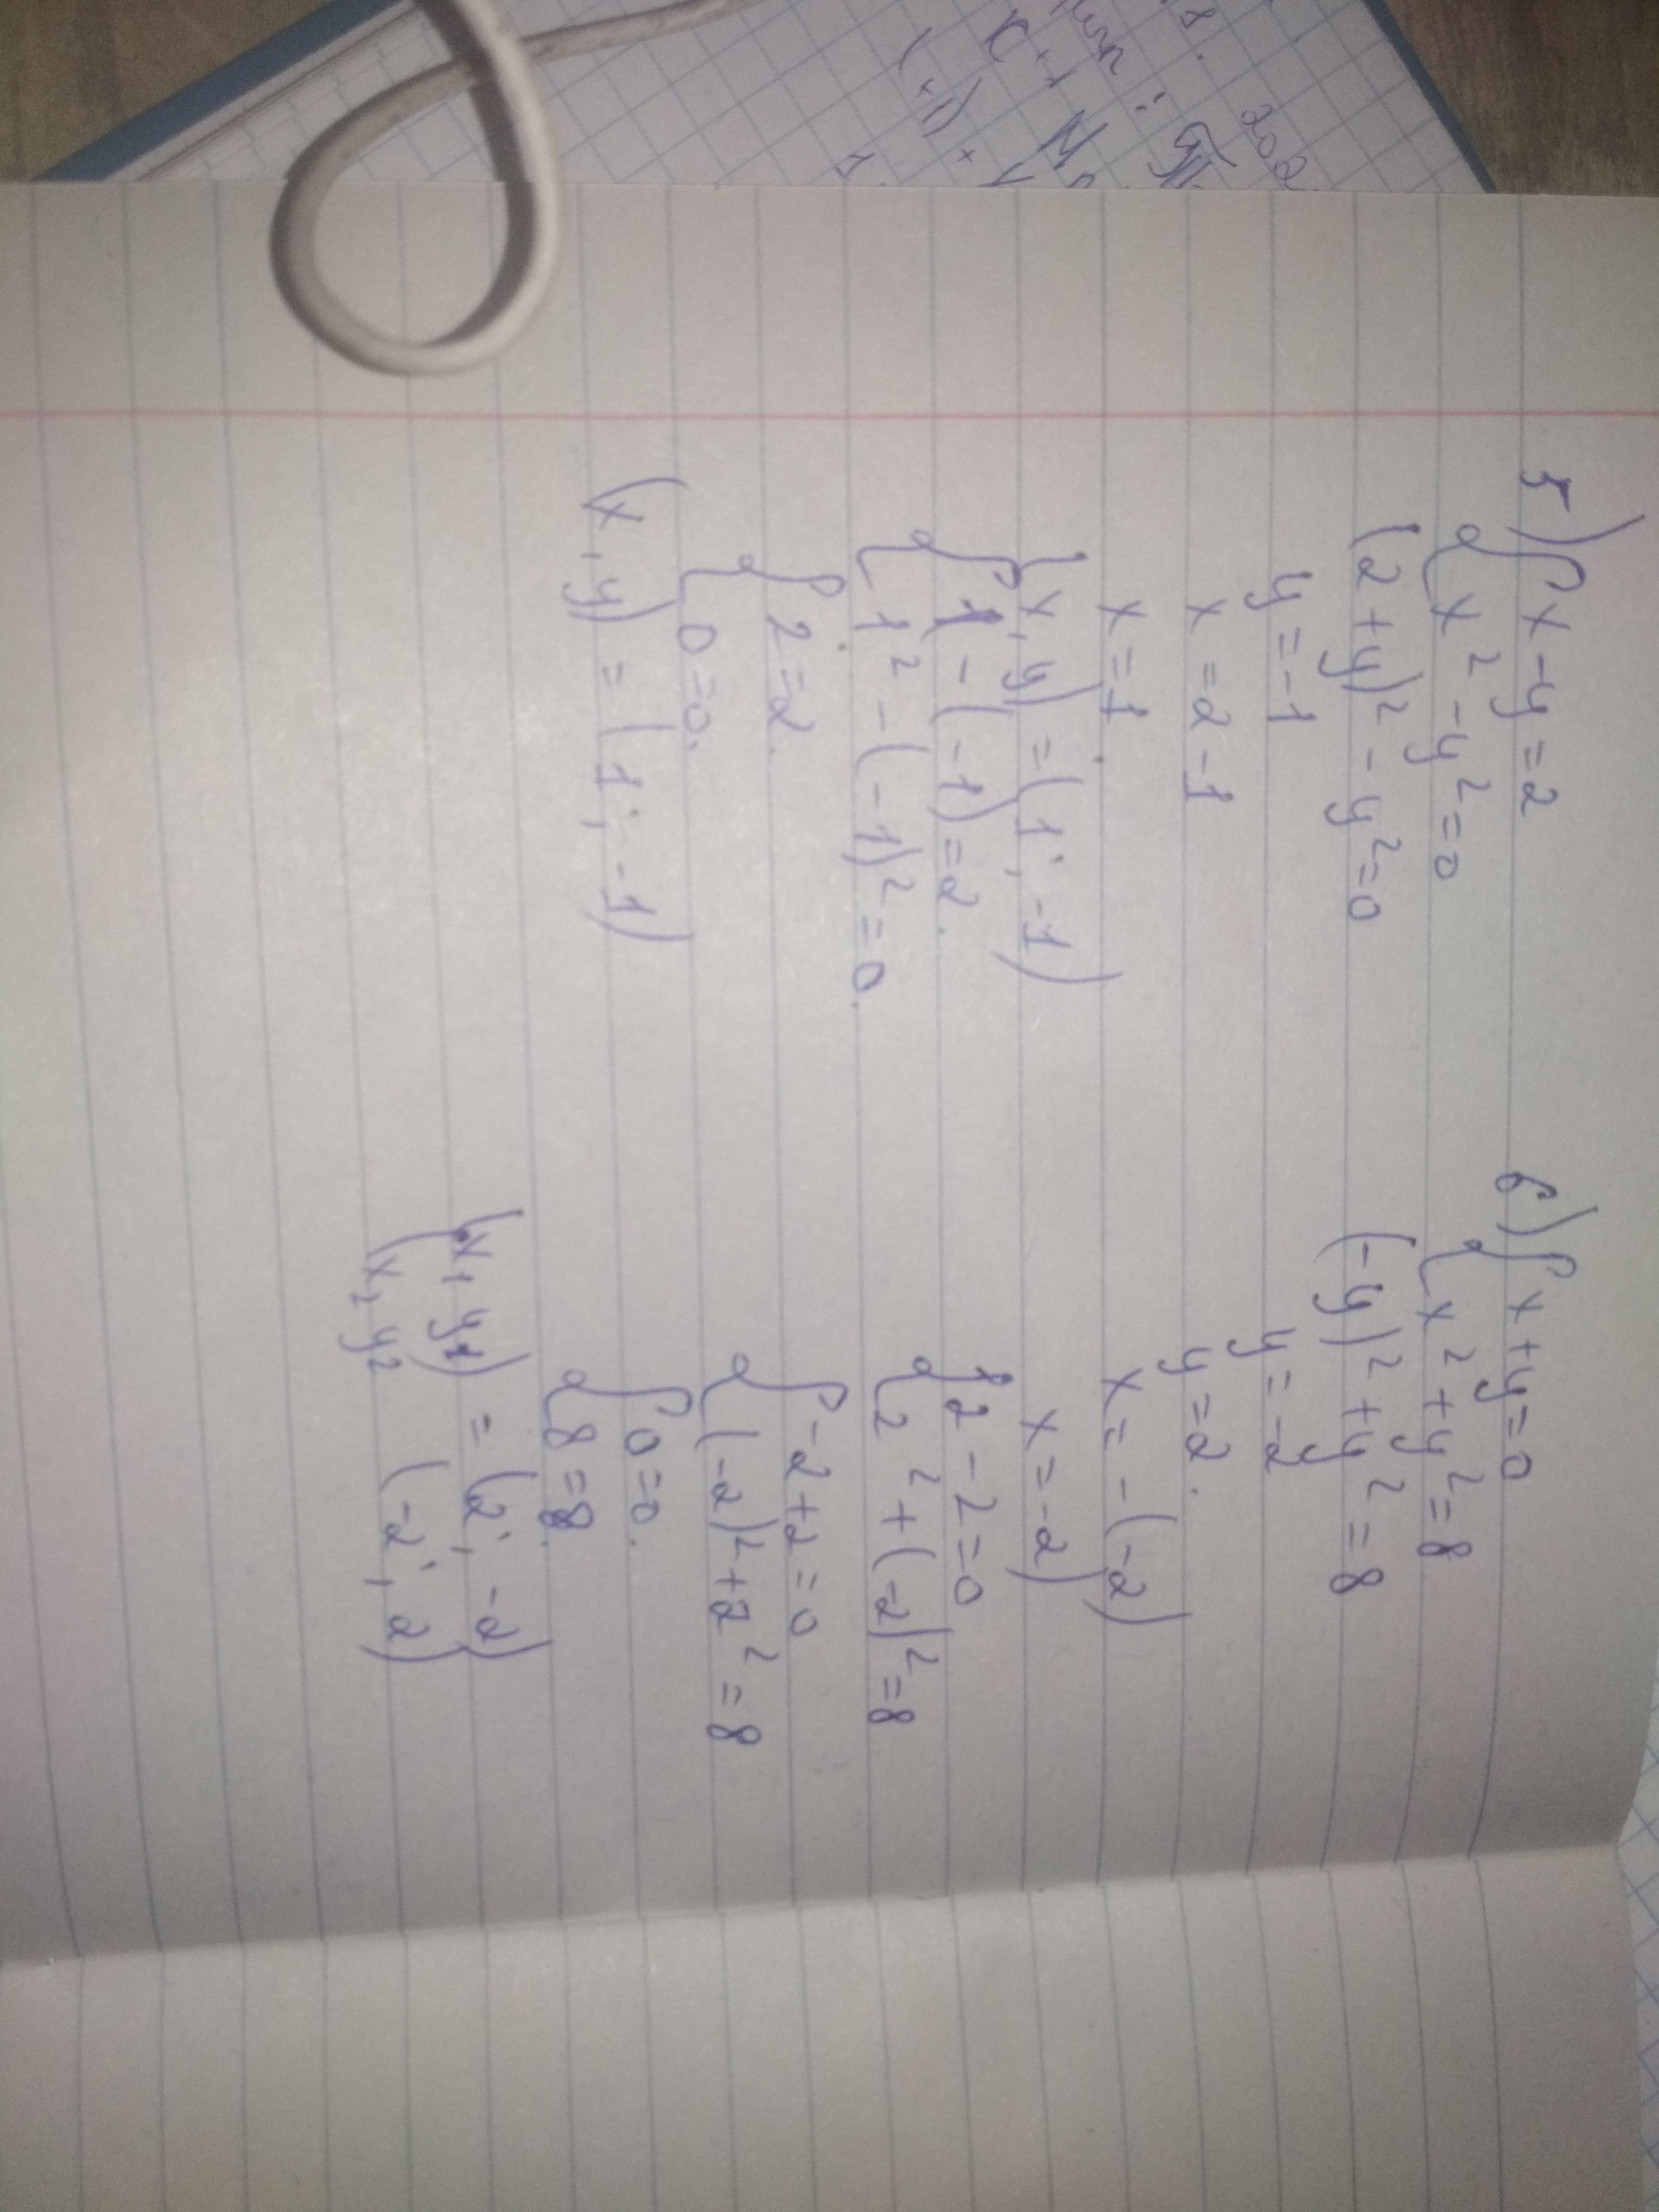 5) { x - y = 2
x² - y² = 0
(2 + y)² - y² = 0
y = -1
x = 2 - 1
x = 1.
(x, y) = (1; -1)
{ 1 - (-1) = 2.
1² - (-1)² = 0.
{ 2 = 2.
0 = 0.
(x, y) = (1; -1)
6) { x + y = 0
x² + y² = 8
(-y)² + y² = 8
y = -2
y = 2.
x = -(-2)
x = -2)
{ 2 - 2 = 0
2² + (-2)² = 8
{ -2 + 2 = 0
(-2)² + 2² = 8
{ 0 = 0.
8 = 8.
(x₁ y₁) = (2; -2)
(x₂ y₂ (-2; 2)